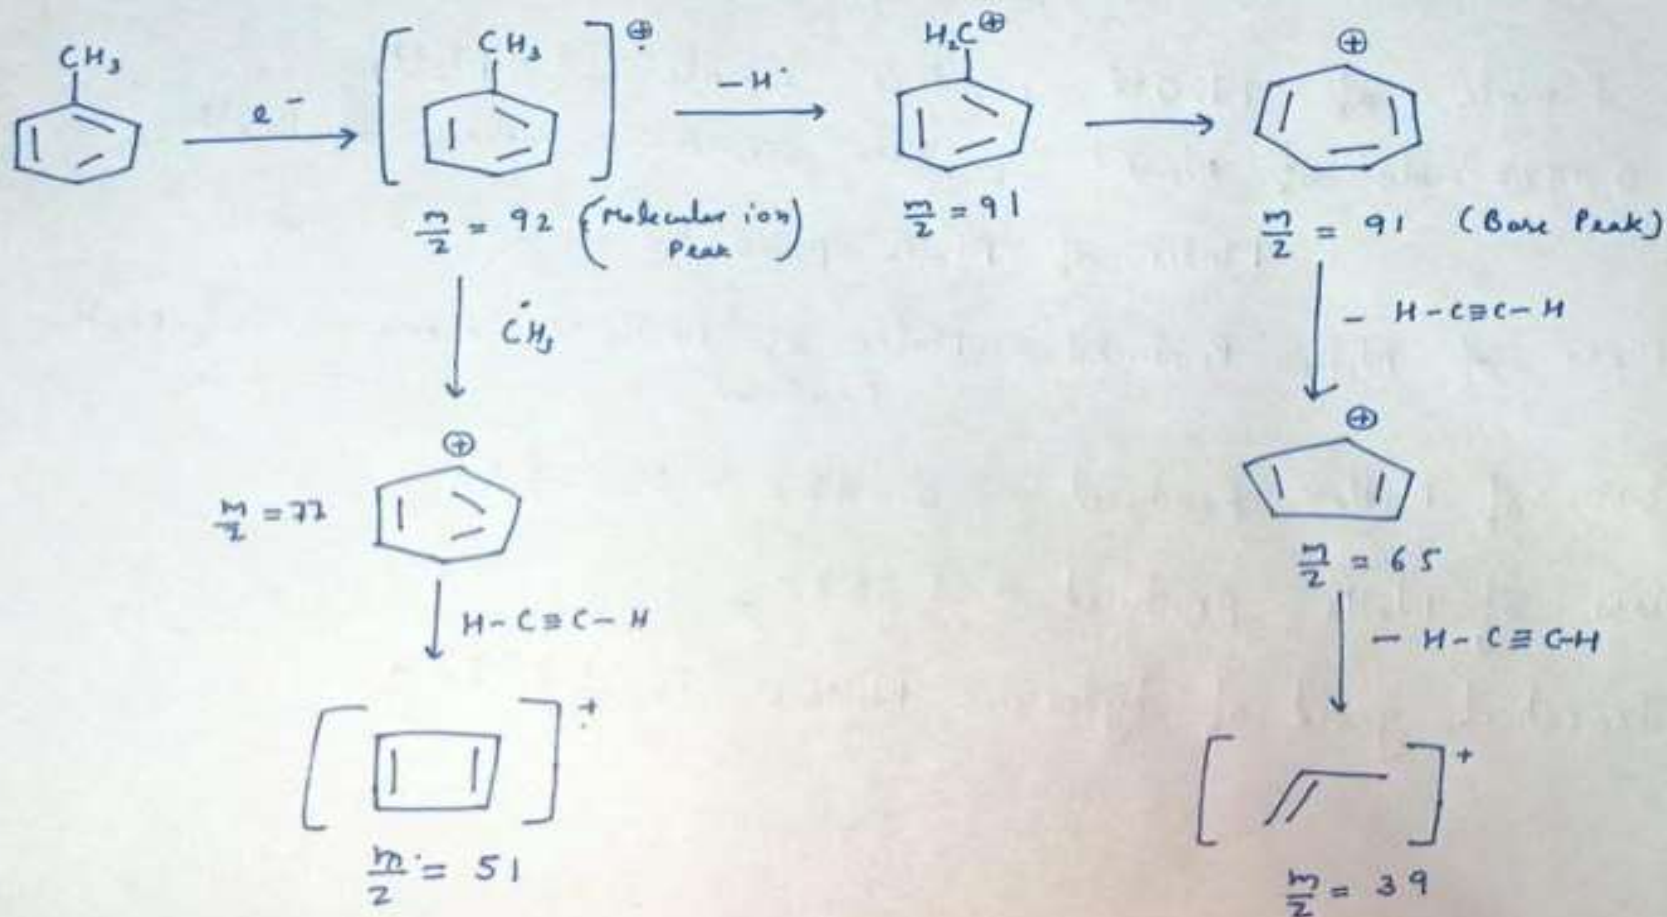 CH3
e⁻
[ CH3 ]⊕·
– H·
H2C⊕
⊕
m/z = 92 (Molecular ion Peak)
m/z = 91
m/z = 91 (Base Peak)
ĊH3
– H–C≡C–H
⊕
⊕
m/z = 77
m/z = 65
H–C≡C–H
– H–C≡C–H
[ ]+·
[ ]+
m/z = 51
m/z = 39